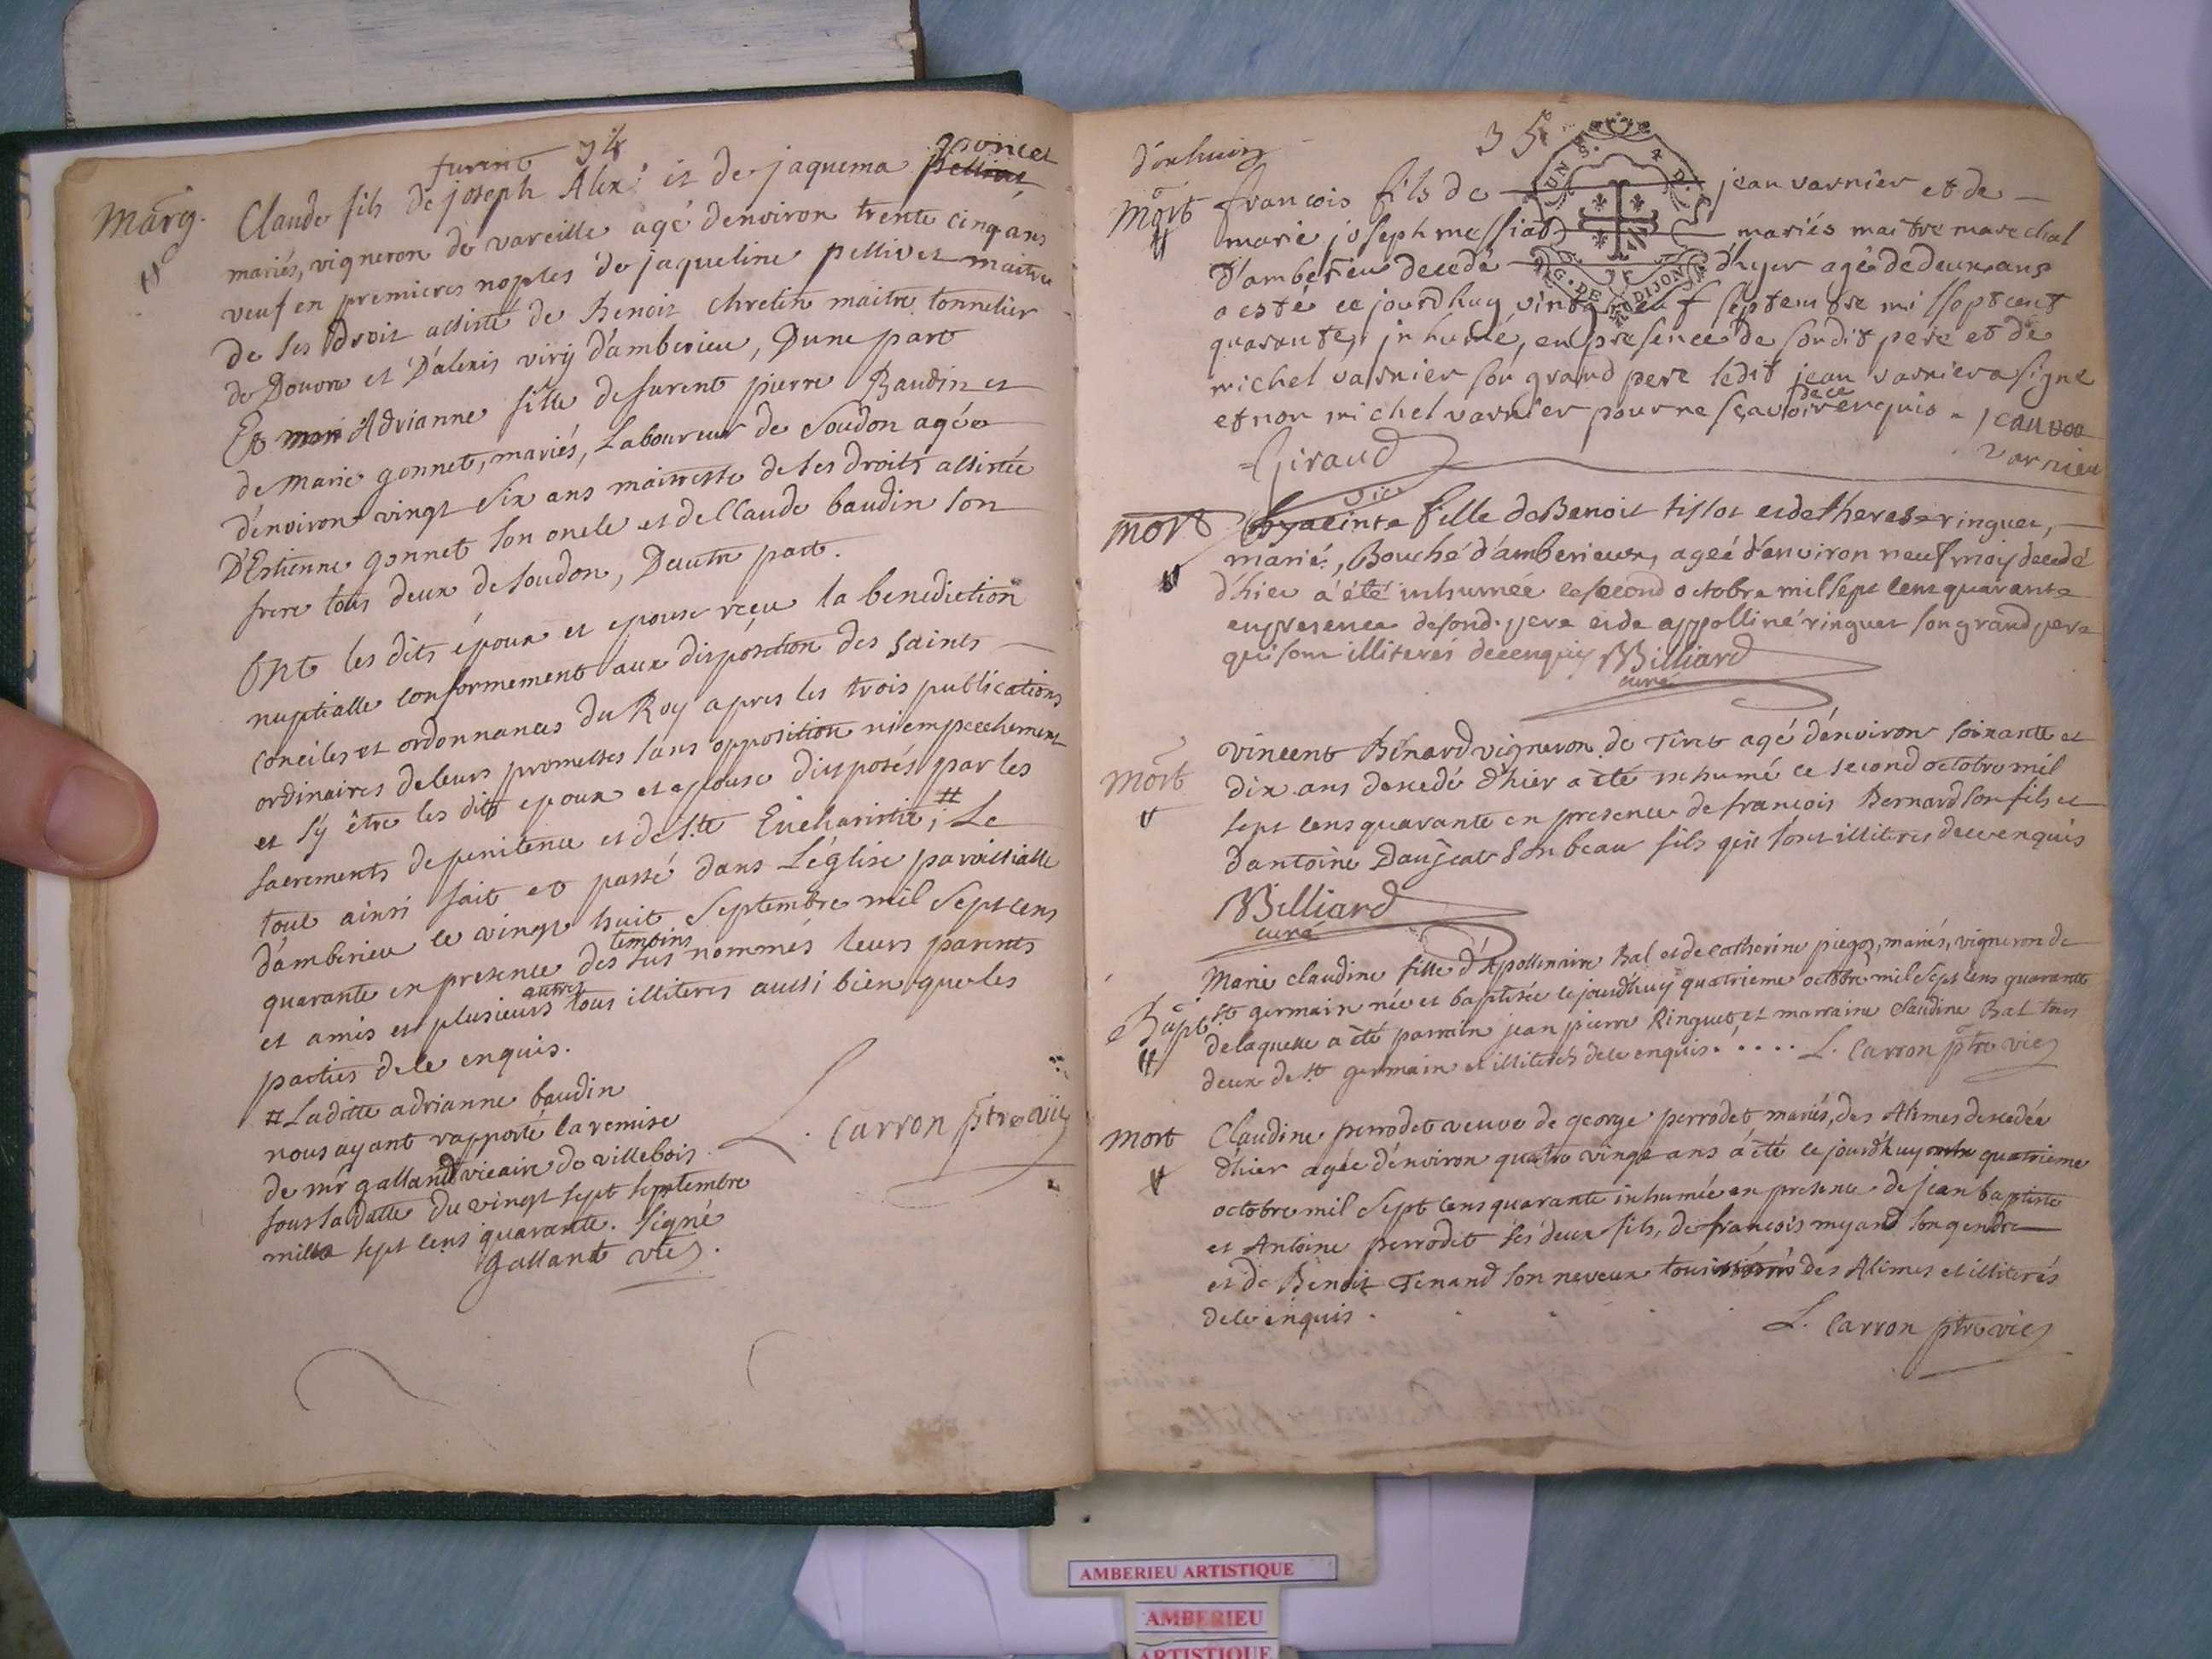 34
furent poncet
Marig. Claude fils de joseph Alex et de jaquema pellivet
mariés, vigneron de vareille agé denviron trente cinq ans
veuf en premieres nopces de jaqueline pellivet maitre
de ses droit assisté de Benoit chretin maitre tonnelier
de Douvre et D'alexis viry d'amberieu, Dune part
Et Adrianne fille de furent pierre Baudin et
de Marie gonnet, mariés, Laboureur de Soudon agée
d'environ vingt six ans maitresse de ses droits assistée
D'Estienne gonnet son oncle et de Claude baudin son
frere tous deux de soudon, Dautre part.
Ont les dits époux et epouse reçu la benediction
nuptialle conformement aux disposition des saints
conciles et ordonnances du Roy apres les trois publications
ordinaires de leurs promesses sans opposition ni empechement
et s'y être les dits epoux et epouse disposés par les
sacrements de penitence et de S.te Eucharistie, # Le
tout ainsi fait et passé dans L'église paroissialle
d'amberieu le vingt huit Septembre mil Sept cens
quarante en presence des temoins sus nommés leurs parents
et amis et plusieurs autres tous illiteres aussi bien que les
parties de ce enquis.
# Laditte adrianne baudin
nous ayant rapporté la remise
de mr galland vicaire de villebois
sous sa datte du vingt sept septembre
mille sept cens quarante. signé
Galland vic.
L. Carron ptre vic
35
Mort françois fils de jean varnier et de
marie joseph messiat mariés maitre marechal
d'amberieu decedé d'hyer agé de deux ans
a esté ce jourdhuy vingt neuf septembre mil septcent
quarante, inhumé, en presence de sondit pere et de
michel varnier son grand pere ledit jean varnier a signé
et non michel varnier pour ne sçavoir de ce enquis = jean
varnier
Giraud
vic
mort hyacinte fille de Benoit tissot et de therese ringuet,
marié, Bouché d'amberieux, ageé d'environ neuf mois decedé
d'hier a été inhumée le second octobre mil sept cens quarante
en presence de sond. pere et de appolliné ringuet son grand pere
qui sont illiterés de ce enquis Billiard
curé
Mort Vincent Bénard vigneron de Tiret agé d'environ soixante et
dix ans decedé d'hier a été inhumé ce second octobre mil
sept cens quarante en presence de francois Bernard son fils et
d'antoine Daujeat son beau fils qui sont illiteres de ce enquis
Billiard
curé
Bapt. Marie claudine fille d'Apollinaire Bal et de catherine piegoz, mariés, vigneron de
st germain née et baptisée ce jourd'huy quatrieme octobre mil Sept cens quarante
de laquelle a été parrain jean pierre Ringuet, et marraine Claudine Bal tous
deux de st germain et illiterés de ce enquis. . . . . L. Carron ptre vic
mort Claudine perrodet veuve de george perrodet, mariés, des Alimes decedée
d'hier agée d'environ quatre vingt ans a été ce jourd'huy quatrieme
octobre mil Sept cens quarante inhumée en presence de jean baptiste
et Antoine perrodet ses deux fils, de françois myand son gendre
et de Benoit Tenand son neveux tous des Alimes et illiterés
de ce enquis.
L. Carron ptre vic
AMBERIEU ARTISTIQUE
AMBERIEU
ARTISTIQUE